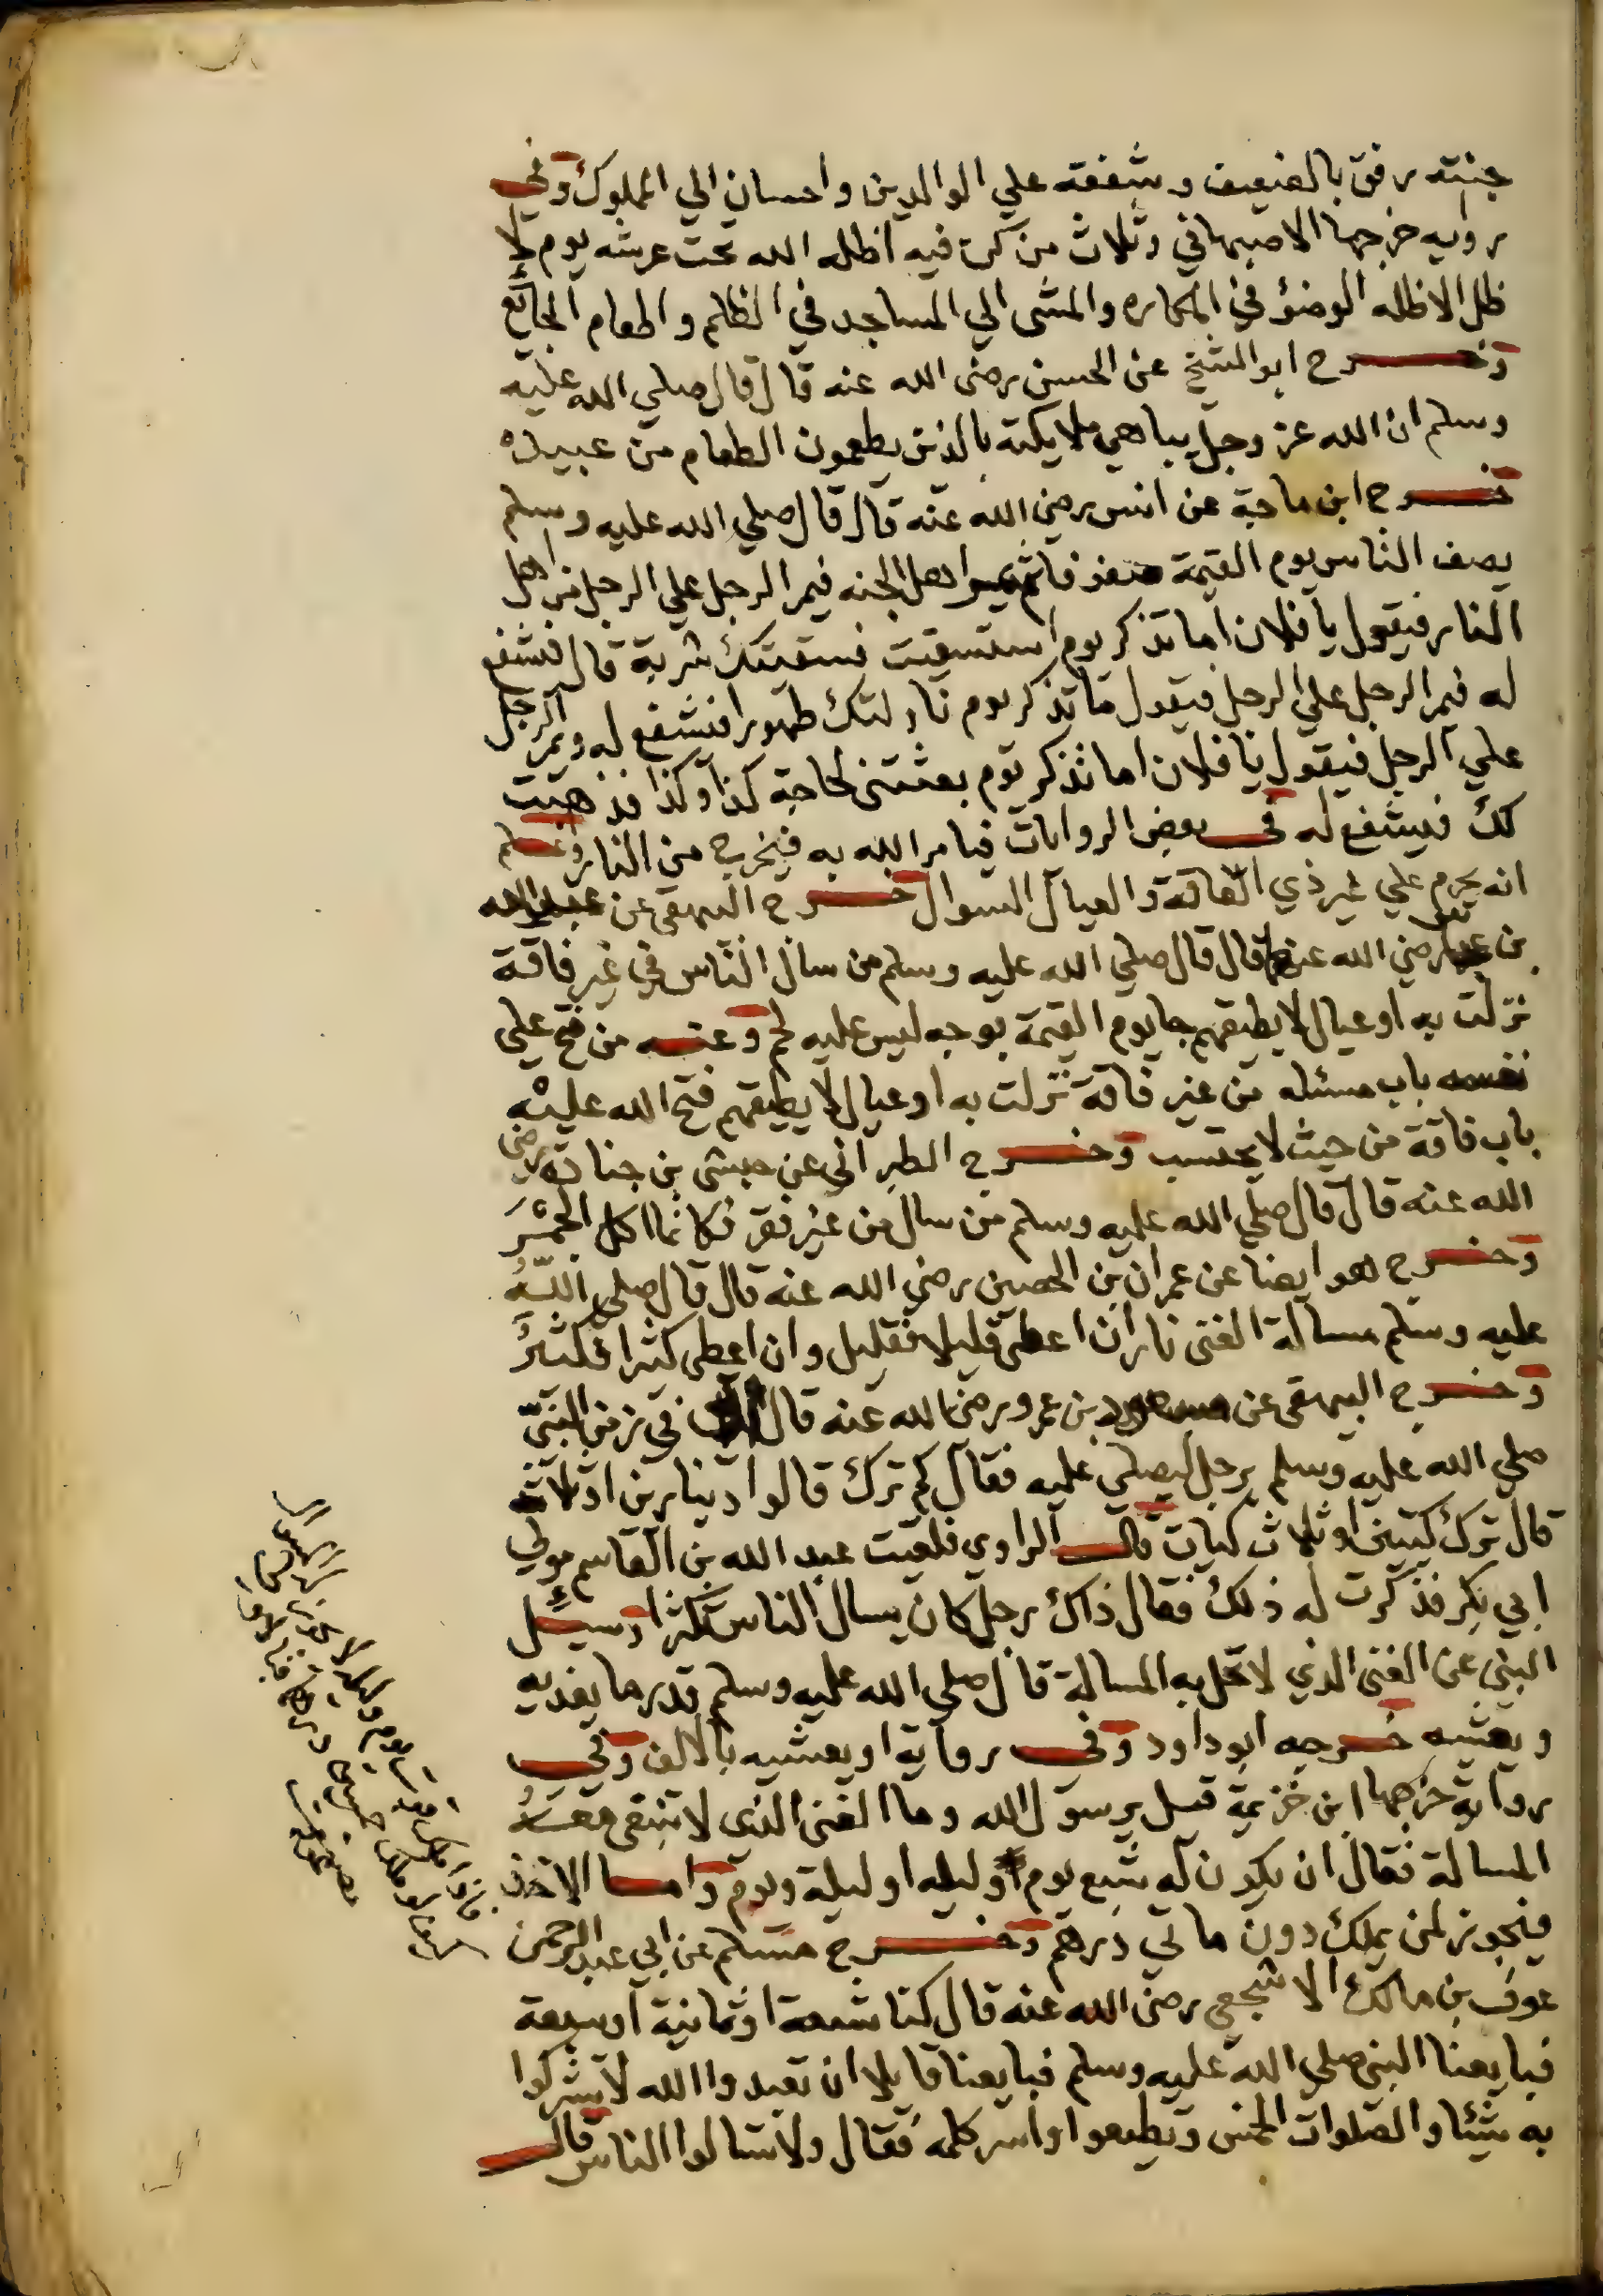 جنته رفق بالضعيف وشفقه علي الوالدين واحسان الي المملوك وفي
روايه خرجها الاصبهاني وثلاث من كن فيه اظله الله تحت عرشه يوم لا
ظل الا ظله الوضؤ في المكاره والمشى الي المساجد في الظلم واطعام الجائع
وخرح ابو الشيخ عن الحسن رضى الله عنه قال قال صلي الله عليه
وسلم ان الله عز وجل يباهي ملايكته بالذين يطعمون الطعام من عبيده
خرح ابن ماجة عن انس رضي الله عنه قال قال صلي الله عليه وسلم
يصف الناس يوم القيمة صفوفا ثم يمر اهل الجنه فيمر الرجل علي الرجل من اهل
النار فيقول يا فلان اما تذكر يوم استسقيت فسقيتك شربة قال فيشفع
له فيمر الرجل علي الرجل فيقول ما تذكر يوم ناولتك طهورا فيشفع له ويمر الرجل
علي الرجل فيقول يا فلان اما تذكر يوم بعثتنى لحاجة كذا وكذا فذهبت
لك فيشفع له في بعض الروايات فيامر الله به فيخرج من النار واعلم
انه يحرم علي غير ذي الفاقة والعيال السوال خرح البيهقى عن عبد الله
بن عباس رضي الله عنهما قال قال صلي الله عليه وسلم من سال الناس في غير فاقة
نزلت به او عيال لا يطيقهم جا يوم القيمة بوجه ليس عليه لحم وعنه من فتح علي
نفسه باب مسئله من غير فاقة نزلت به او عيال لا يطيقهم فتح الله عليه
باب فاقة من حيث لا يحتسب وخرح الطبراني عن حبشى بن جنادة رضى
الله عنه قال قال صلي الله عليه وسلم من سال من غير فقر فكانما اكل الجمر
وخرح هو ايضا عن عمران بن الحصين رضي الله عنه قال قال صلى الله
عليه وسلم مسالة الغنى نار ان اعطى قليلا فقليل وان اعطى كثيرا فكثير
وخرح البيهقى عن مسعود بن عمرو رضى الله عنه قال اتى في زمن النبي
صلي الله عليه وسلم برجل ليصلي عليه فقال كم ترك قالوا دينارين او ثلاث
قال ترك كيتين او ثلاث كيات قال الراوي فلقيت عبد الله بن القاسم مولي
ابي بكر فذكرت له ذلك فقال ذاك رجل كان يسال الناس تكثرا وسيئل
النبي عن الغنى الذي لا تحل به المسالة قال صلى الله عليه وسلم قدر ما يغديه
ويعشيه خرجه ابو داود وفي رواية او يعشيه بالالف وفي
رواية خرجها ابن خزيمة قيل يرسول الله وما الغنى الذى لا تنبغى معه
المسالة فقال ان يكون له شبع يوم وليله او ليلة ويوم واما الاخذ
فيجوز لمن يملك دون ماتي درهم وخرح مسلم عن ابي عبد الرحمن
عوف بن مالك الاشجعي رضى الله عنه قال كنا تسعة او ثمانية او سبعة
فبايعنا النبى صلي الله عليه وسلم فبايعنا قايلا ان تعبدوا الله لا تشركوا
به شيئا والصلوات الخمس وتطيعوا واسر كلمه فقال ولا تسالوا الناس قال